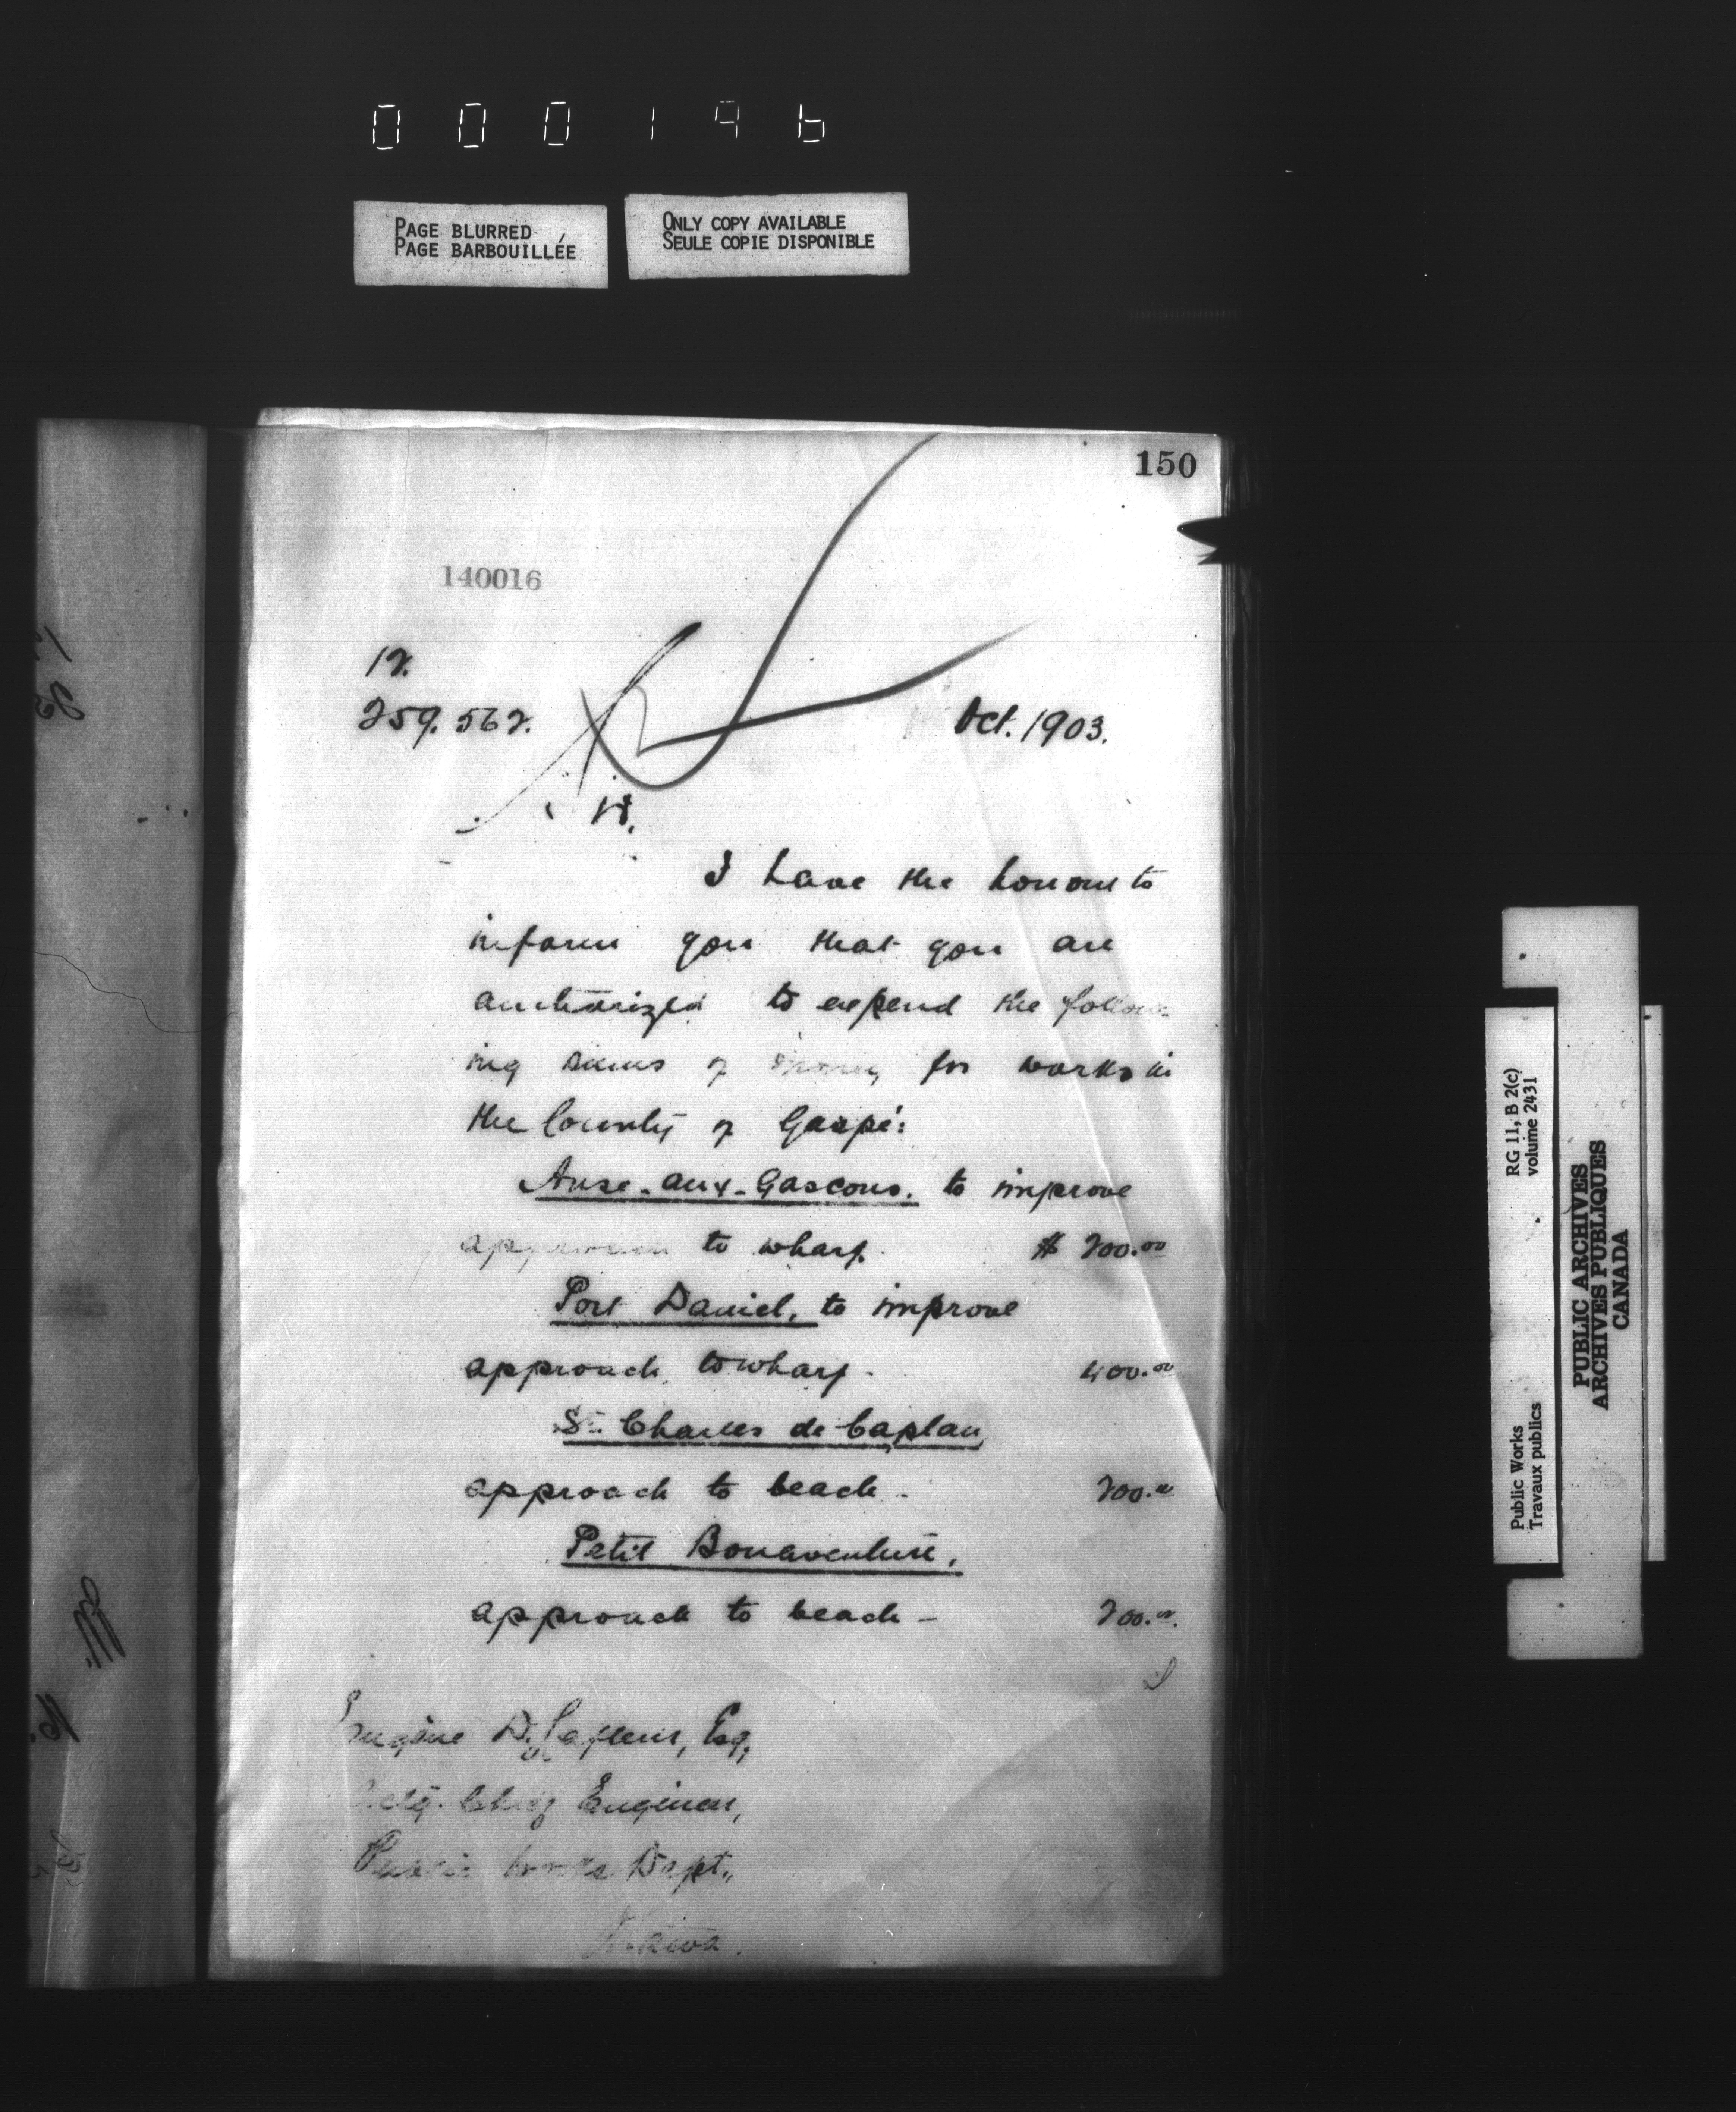 000196
PAGE BLURRED
PAGE BARBOUILLÉE
ONLY COPY AVAILABLE
SEULE COPIE DISPONIBLE
150
140016
12.
259.562.
Oct. 1903.
I have the honour to
inform you that you are
authorized to expend the follow-
ing sums of money for works in
the County of Gaspé:
Anse-aux-Gascons, to improve
approach to wharf. $ 200.00
Port Daniel, to improve
approach to wharf - 400.00
St. Charles de Caplan,
approach to beach - 200.00
Petit Bonaventure,
approach to beach - 200.00
Eugène D. Lafleur, Esq,
Actg. Chief Engineer,
Public Works Dept.,
Ottawa.
RG 11, B 2(c)
volume 2431
Public Works
Travaux publics
PUBLIC ARCHIVES
ARCHIVES PUBLIQUES
CANADA